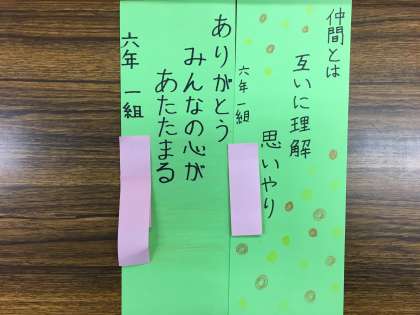 仲間とは
互いに理解
思いやり
六年一組
ありがとう
みんなの心が
あたたまる
六年 一組